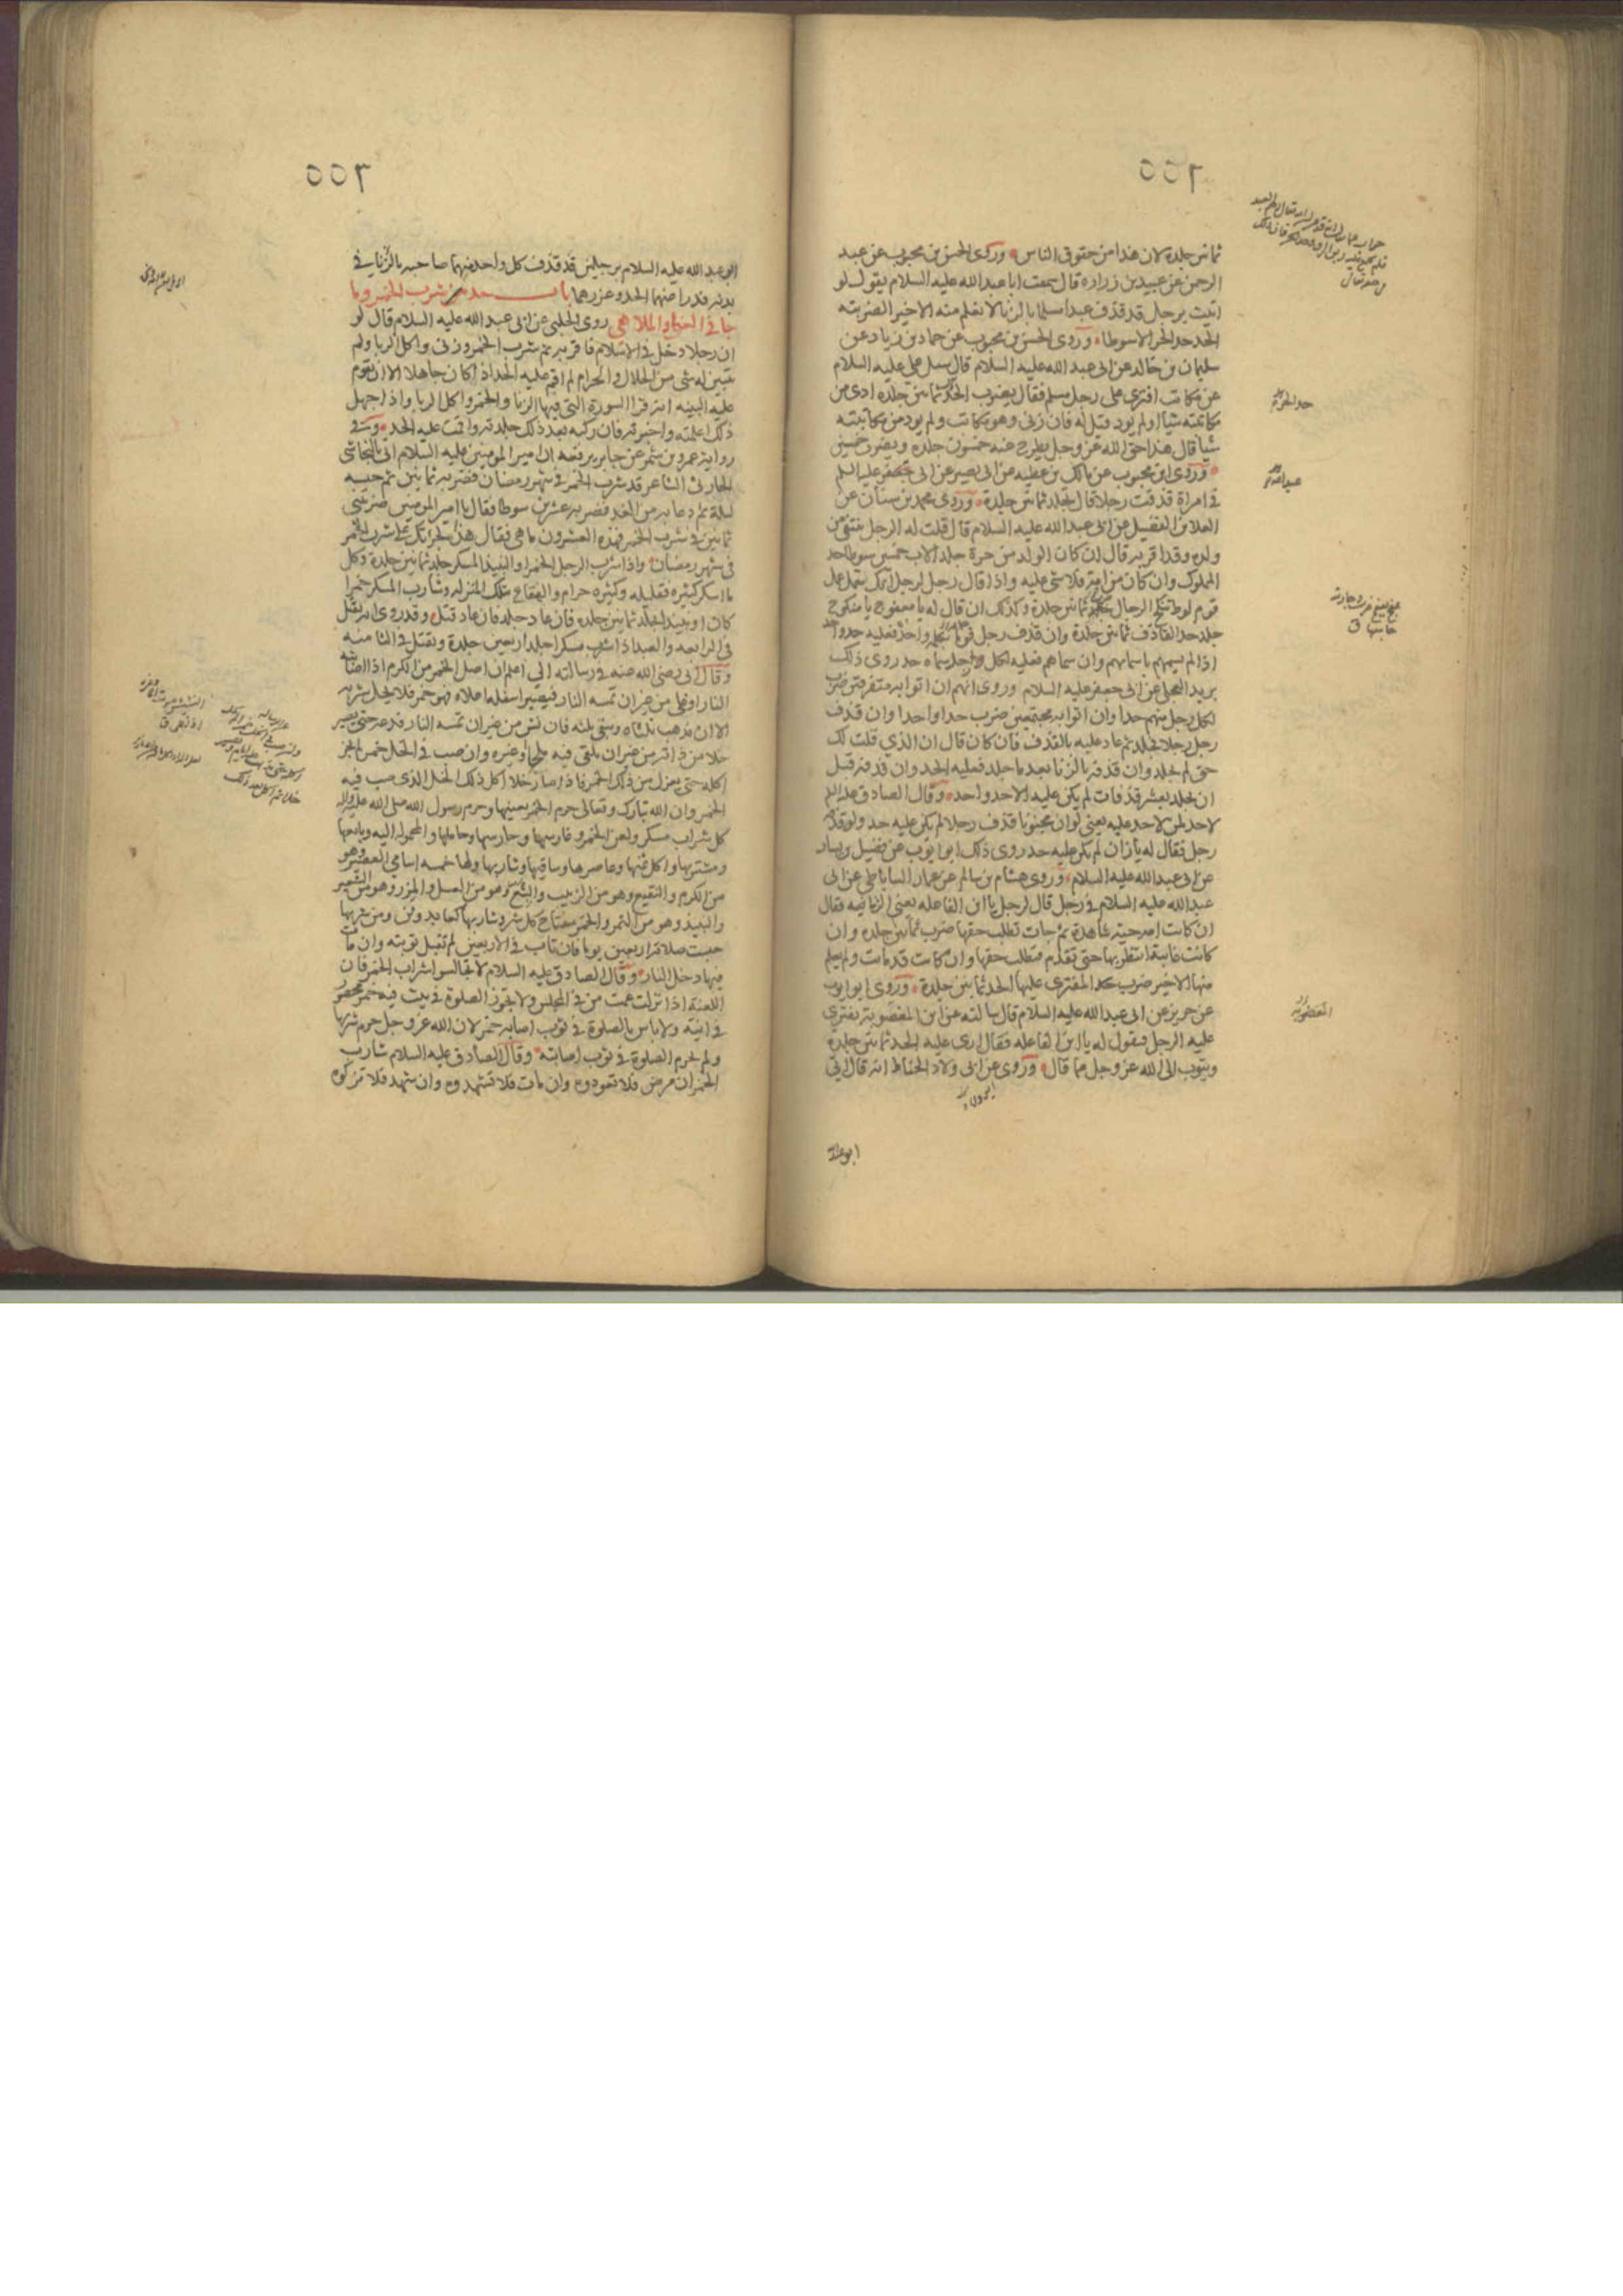 ثمانين جلدة لان هذا من حقوق الناس وروى الحسن بن محبوب عن عبد
الرحمن عن عبيد بن زرارة قال سمعت ابا عبد الله عليه السلام يقول لو
اتيت برجل قد قذف عبدا مسلما بالزنا لا نعلم منه الا خيرا لضربته
الحد حد الحر الا سوطا وروى الحسن بن محبوب عن حماد بن زياد عن
سليمان بن خالد عن ابى عبد الله عليه السلام قال سئل على عليه السلام
عن مكاتب افترى على رجل مسلم فقال يضرب الحد ثمانين جلدة ادى من
مكاتبته شيأ او لم يود قيل له فان زنى وهو مكاتب ولم يود من مكاتبته
شيأ قال هذا حق الله عز وجل يطرح عنه خمسون جلدة ويضرب خمسين
وروى ابن محبوب عن مالك بن عطيه عن ابى بصير عن ابى جعفر عليه السلم
فى امراة قذفت رجلا قال تجلد ثمانين جلدة وروى محمد بن سنان عن
العلا بن الفضيل عن ابى عبد الله عليه السلام قال قلت له الرجل ينتفى من
ولده وقد اقر به قال ان كان الولد من حرة جلد الاب خمسين سوطا حد
المملوك وان كان من امة فلا شى عليه واذا قال رجل لرجل انك تعمل عمل
قوم لوط تنكح الرجال يجلد ثمانين جلدة وكذلك ان قال له يا معفوج يا منكوح
جلد حد القاذف ثمانين جلدة وان قذف رجل قوما بكلمة واحدة فعليه حد واحد
اذا لم يسمهم باسمائهم وان سماهم فعليه لكل رجل سماه حد روى ذلك
بريد العجلى عن ابى جعفر عليه السلام وروى انهم ان اتوا به متفرقين ضرب
لكل رجل منهم حدا وان اتوا به مجتمعين ضرب حدا واحدا وان قذف
رجل رجلا فجلد ثم عاد عليه بالقذف فان كان قال ان الذي قلت لك
حق لم يجلد وان قذفه بالزنا بعد ما جلد فعليه الحد وان قذفه قبل
ان يجلد بعشر قذفات لم يكن عليه الا حد واحد وقال الصادق عليه السلم
لا حد لمن لا حد عليه يعنى لو ان مجنونا قذف رجلا لم يكن عليه حد ولو قذفه
رجل فقال له يا زان لم يكن عليه حد روى ذلك ابو ايوب عن فضيل بن يسار
عن ابى عبد الله عليه السلام وروى هشام بن سالم عن عمار الساباطى عن ابى
عبد الله عليه السلام فى رجل قال لرجل يا ابن الفاعله يعنى الزنا فيه فقال
ان كانت امه حية شاهدة ثم جات تطلب حقها ضرب ثمانين جلدة وان
كانت غايبة انتظر بها حتى تقدم فتطلب حقها وان كانت قد ماتت ولم يعلم
منها الا خير ضرب حد المفترى عليها الحد ثمانين جلدة وروى ابو ايوب
عن حريز عن ابى عبد الله عليه السلام قال سالته عن ابن المغصوبة يفترى
عليه الرجل فيقول له يا ابن الفاعله فقال ارى عليه الحد ثمانين جلدة
ويتوب الى الله عز وجل مما قال وروى عن ابى ولاد الحناط انه قال اتي
ابو عبد الله
ابو عبد الله عليه السلام برجلين قد قذف كل واحد منهما صاحبه بالزنا في
بدنه فدرا عنهما الحد وعزرهما باب حد شرب الخمر وما
جا فى الغنا والملاهى روى الحلبى عن ابى عبد الله عليه السلام قال لو
ان رجلا دخل فى الاسلام فاقر به ثم شرب الخمر وزنى واكل الربا ولم
يتبين له شى من الحلال والحرام لم اقم عليه الحد اذا كان جاهلا الا ان تقوم
عليه البينه انه قرا السورة التى فيها الزنا والخمر واكل الربا واذا جهل
ذلك اعلمته واخبرته فان ركبه بعد ذلك جلدته واقمت عليه الحد وفى
رواية عمرو بن شمر عن جابر يرفعه ان امير المومنين عليه السلام اتى بالنجاشى
الحارثى الشاعر قد شرب الخمر فى شهر رمضان فضربه ثمانين ثم حبسه
ليلة ثم دعا به من الغد فضربه عشرين سوطا فقال يا امير المومنين ضربتنى
ثمانين فى شرب الخمر فهذه العشرون ما هى فقال هذا لجرأتك على شرب الخمر
فى شهر رمضان واذا شرب الرجل الخمر او النبيذ المسكر جلد ثمانين جلدة وكل
ما اسكر كثيره فقليله وكثيره حرام والفقاع بتلك المنزله وشارب المسكر خمرا
كان او نبيذا يجلد ثمانين جلدة فان عاد جلد فان عاد قتل وقد روى انه يقتل
فى الرابعه والعبد اذا شرب مسكرا جلد اربعين جلدة ويقتل فى الثامنه
وقال ابى رضى الله عنه فى رسالته الي اعلم ان اصل الخمر من الكرم اذا اصابته
النار او غلى من غير ان تمسه النار فيصير اسفله اعلاه فهو خمر فلا يحل شربه
الا ان يذهب ثلثاه ويبقى ثلثه فان نش من غير ان تمسه النار فدعه حتى يصير
خلا من ذاته من غير ان يلقى فيه ملح او غيره وان صب فى الخل خمر لم يجز
اكله حتى يعزل من ذلك الخمر فاذا صار خلا اكل ذلك الخل الذى صب فيه
الخمر وان الله تبارك وتعالى حرم الخمر بعينها وحرم رسول الله صلى الله عليه واله
كل شراب مسكر ولعن الخمر وغارسها وحارسها وحاملها والمحموله اليه وبائعها
ومشتريها واكل ثمنها وعاصرها وساقيها وشاربها ولها خمسه اسامي العصير وهو
من الكرم والنقيع وهو من الزبيب والبتع وهو من العسل والمزر وهو من الشعير
والنبيذ وهو من التمر والخمر مفتاح كل شر وشاربها كعابد وثن ومن شربها
حبست صلاته اربعين يوما فان تاب فى الاربعين لم تقبل توبته وان مات
فيها دخل النار وقال الصادق عليه السلام لا تجالسوا شراب الخمر فان
اللعنة اذا نزلت عمت من فى المجلس ولا تجوز الصلوة فى بيت فيه خمر محصور
فى انية ولا باس بالصلوة فى ثوب اصابه خمر لان الله عز وجل حرم شربها
ولم يحرم الصلوة فى ثوب اصابته وقال الصادق عليه السلام شارب
الخمر ان مرض فلا تعودوه وان مات فلا تشهدوه وان شهد فلا تزكوه